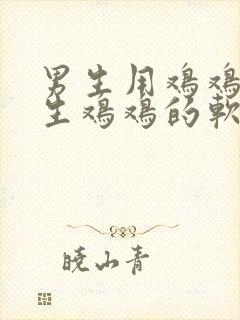 男生用鸡鸡
生鸡鸡的軟
晓山青